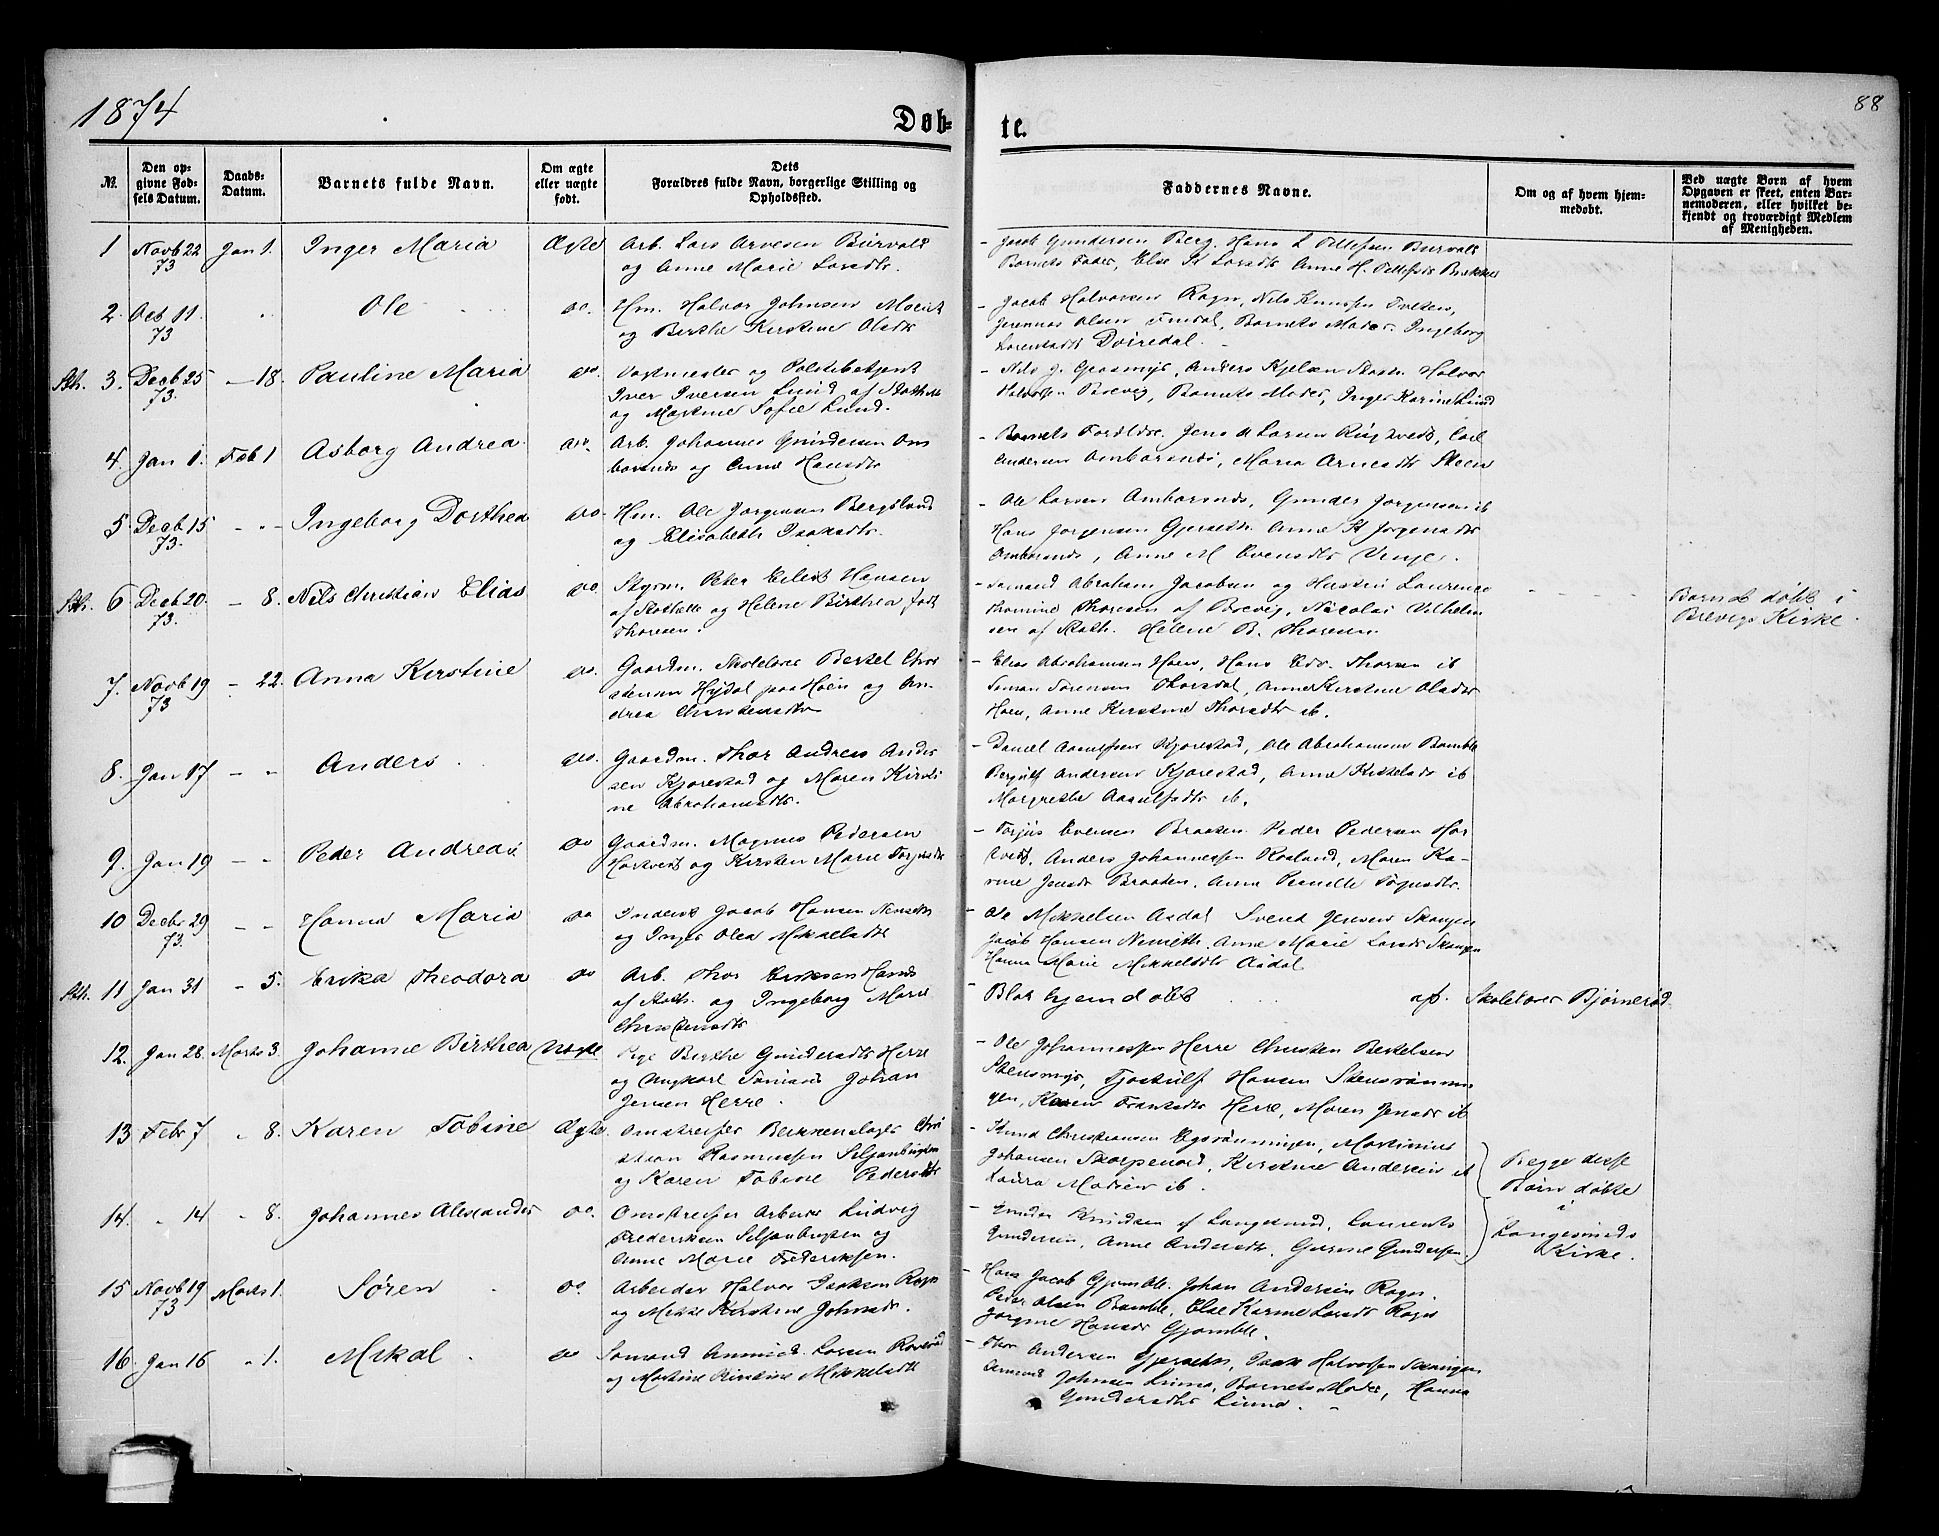 1874
Døb-
te.
88
№.
Den op-
givne Fød-
sels Datum.
Daabs-
Datum.
Barnets fulde Navn.
Om ægte
eller uægte
født.
Dets
Forældres fulde Navn, borgerlige Stilling og
Opholdssted.
Faddernes Navne.
Om og af hvem hjem-
medøbt.
Ved uægte Børn af hvem
Opgaven er skeet, enten Bar-
nemoderen, eller hvilket be-
kjendt og troværdigt Medlem
af Menigheden.
1 Novb 22 Jan 1. Inger Maria Ægte Arb. Lars Arvesen
73 og Anne Marie Larsdtr.
Jacob Gundersen Berg, Hans L Tellefsen
Barnets Fader, Else K Larsdtr Anne H. Tellefsdtr
2. Oct 11. Ole do. Hm. Halvor Johnsen
73 og Birthe Kirstine Olsdtr
Jacob Halvorsen Rogn, Nils Knudsen Tveten,
Olsen Findal, Barnets Moder, Ingeborg
Sth. 3. Decb 25 – 18. Pauline Maria do. og Politibetjent
73. Iver Iversen Lund af Stathelle
og Martine Sofie Lund.
Halvor
Halvorsen Brevig, Barnets Moder, Inger Karine Lund
4. Jan 1. Feb 1 Asborg Andrea do. Arb. Johannes Gundersen Om
og Anne Hansdtr
Barnets Forældre, Jens Larsen Rugtvedt, Carl
Andersen Maria Arnesdtr Skeen
5. Decb 15 – " Ingeborg Dorthea do. Hm. Ole Jørgensen Bergsland
73. og Elisabeth Isaksdtr.
Ole Larsen Gunder Jørgensen ib
Hans Jørgensen Gjerseth Anne K Jørgensdtr
Anne M Evensdtr
Sth. 6 Decb 20. – 8. Nils Christian Elias do. Styrm. Peter Eilert Hansen
73. af Stathelle og Helene Birthea født
Thoresen.
Sømand Abraham Jacobsen og Hustru Laurence
Thoresen af Brevig, Nicolai Vilhelm
sen af Stath. Helene B. Thoresen.
Barnet døbt i
Brevigs Kirke.
7. Novb 19 – 22. Anna Kirstine do. Gaardm. Skolelærer Bertel Chri
73 stensen Hydal paa Høen og An
drea Christensdtr
Elias Abrahamsen Høen, Hans Edv. Thorsen ib
Simon Sørensen Thorsdal, Anne Kirstine Olsdtr
Høen, Anne Kirstine Thorsdtr ib.
8. Jan 17 – " Anders do. Gaardm. Thor Andreas Ander
sen Kjørestad og Maren Kirsti
ne Abrahamsdtr.
Daniel Aanulfsen Kjørestad, Ole Abrahamsen Bamble
Bergulf Andersen Kjørestad, Anne ib
Margrethe Aanulfsdtr ib.
9. Jan 19 – " Peder Andreas do Gaardm. Magnus Pedersen
Hartvedt og Kirsten Marie Torjusdtr
Torjus Evensen Braaten Peder Pedersen Har
tvedt, Anders Johannessen Rosland, Maren Ka-
rine Jensdtr Braaten, Anne Pernille Torjusdtr.
10 Decbr 29 – " Hanna Maria do Inderst Jacob Hansen Nenseth
73. og Inger Olea Mikkelsdtr
Ole Mikkelsen Asdal Svend Jensen Skougen
Jacob Hansen Nenseth, Anne Marie Larsdtr Skougen
Hanna Marie Mikkelsdtr Asdal
Sth. 11 Jan 31 " 5. Erika Theodora do Arb. Thor Eriksen
af Stath. og Ingeborg Marie
Christensdtr
Blot hjemdøbt af. Skolelærer Bjørnerød.
12. Jan 28. Marts 3. Johanne Birthea Uægte Pige Birthe Gundersdtr Herre
og Ungkarl Sømand Johan
Jensen Herre.
Ole Johannessen Herre Christen Bertelsen
Stensmyr, Hansen Stensrønnin
gen, Karen Herre, Maren Jensdtr ib
13 Febr 7 " 8. Karen Tobine Ægte. Omstreifer Blikkenslager Chri
stian Rasmussen
og Karen Tobine Pedersdtr
Knud Christiansen Martinius
Johansen Skarpenord, Kirstine Andersen ib
Laura Madsen ib.
Begge disse
Børn døbte
i
Langesunds
Kirke.
14. " 14 " 8. Johannes Alexander do. Omstreifer Arbeider Ludvig
Frederiksen og
Anne Marie Frederiksen.
Gunder Knudsen af Langesund, Laurents
Gundersen, Anne Andersdtr, Gurine Gundersen.
15 Novb 19 Marts 1. Søren do. Arbeider Halvor Isaksen Rogn
73 og Mikke Kirstine Johnsdtr.
Hans Jacob Gjømble, Johan Andersen Rogn.
Peder Olsen Bamble, Else Karine Larsdtr Rogn
Jørgine Hansdtr Gjømble.
16. Jan 16 " 1. Mikal do Sømand Larsen
og Martine Kirstine Mikkelsdtr
Thor Andersen Gjerseth, Isak Halvorsen
Johnsen Linna, Barnets Moder, Hanna
Gundersdtr Linna.